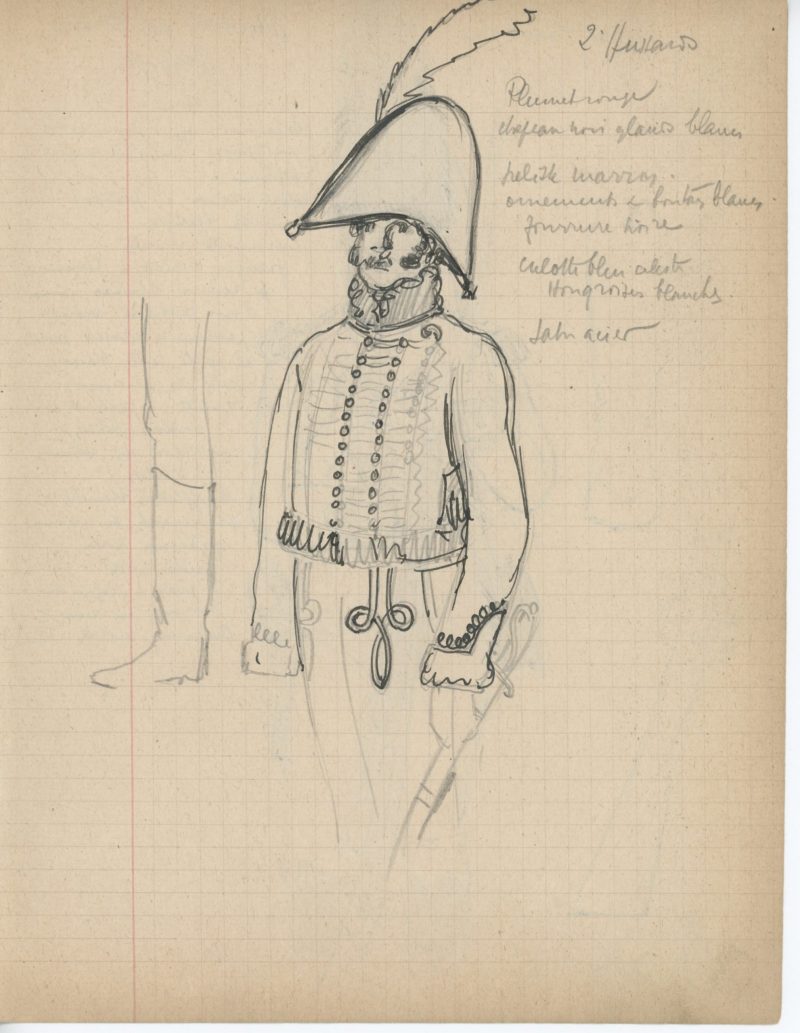 2e Hussards
Plumet rouge
chapeau noir glands blancs
pelisse marron.
ornements & boutons blancs.
fourrure noire
culotte bleu céleste
Hongroises blanches.
Sabre acier